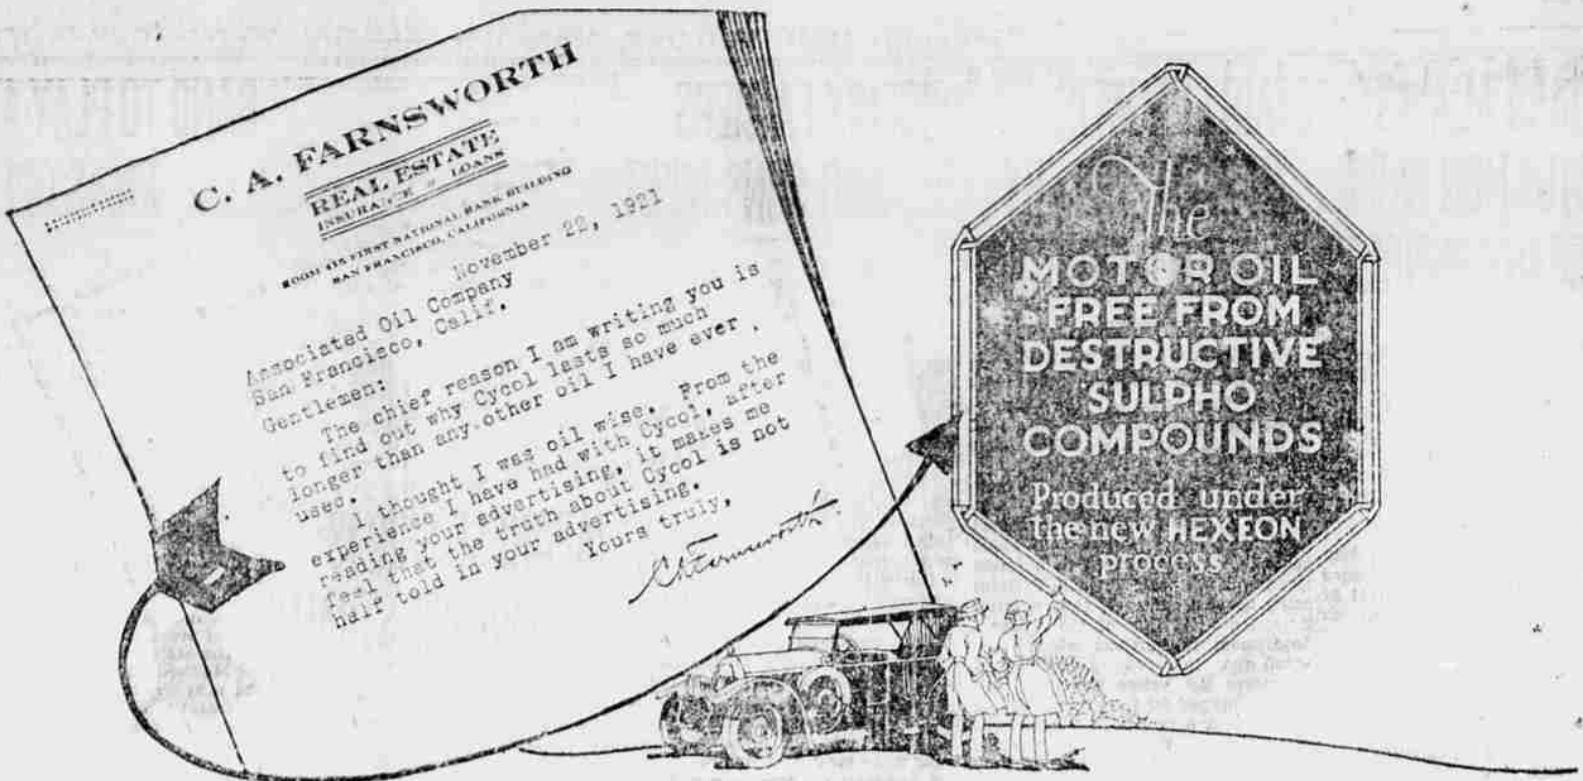 C. A. FARNSWORTH
REAL ESTATE
INSURANCE LOANS
ROOM 415 FIRST NATIONAL BANK BUILDING
SAN FRANCISCO, CALIFORNIA
November 22, 1921
Associated Oil Company
San Francisco, Calif.
Gentlemen:
The chief reason I am writing you is
to find out why Cycol lasts so much
longer than any other oil I have ever
used.
I thought I was oil wise. From the
experience I have had with Cycol, after
reading your advertising, it makes me
feel that the truth about Cycol is not
half told in your advertising.
Yours truly,
C A Farnsworth
The
MOTOR OIL
FREE FROM
DESTRUCTIVE
SULPHO
COMPOUNDS
Produced under
the new HEXEON
process